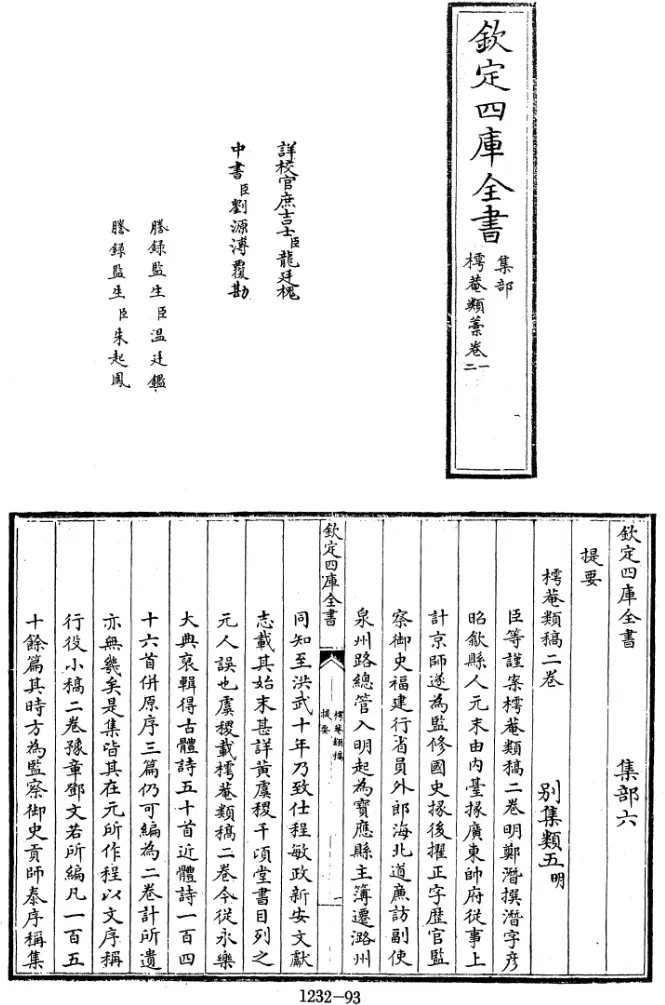 欽定四庫全書
集部
樗菴類藁卷一
二
詳校官庶吉士臣龍廷槐
中書臣劉源溥覆勘
謄錄監生臣溫廷鑑
謄錄監生臣朱起鳳
欽定四庫全書 集部六
提要
樗菴類稿二卷 別集類五明
臣等謹案樗菴類稿二卷明鄭潛撰潛字彦
昭歙縣人元末由内臺掾廣東帥府從事上
計京師遂為監修國史掾後擢正字歴官監
察御史福建行省員外郎海北道亷訪副使
泉州路總管入明起為寶應縣主簿遷潞州
欽定四庫全書
樗菴類稿
提要
一
同知至洪武十年乃致仕程敏政新安文獻
志載其始末甚詳黄虞稷千頃堂書目列之
元人誤也虞稷載樗菴類稿二卷今從永樂
大典裒輯得古體詩五十首近體詩一百四
十六首併原序三篇仍可編為二卷計所遺
亦無幾矣是集皆其在元所作程以文序稱
行役小稿二卷豫章鄧文若所編凡一百五
十餘篇其時方為監察御史貢師泰序稱集
1232-93